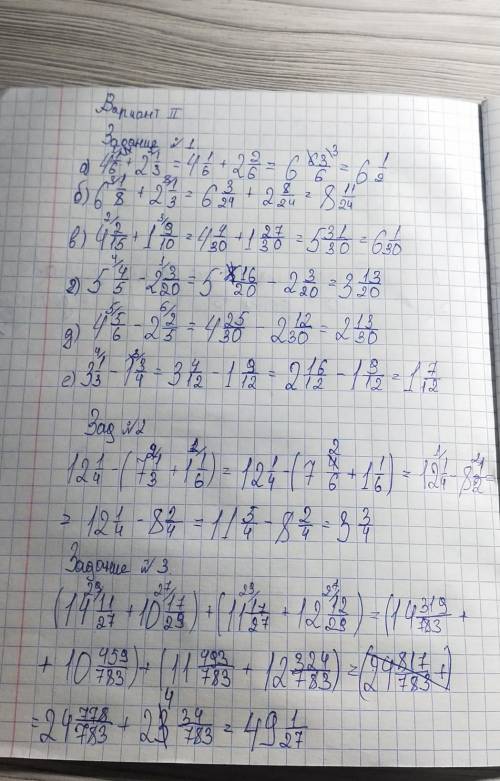 Вариант II
Задание №1
а) 4 1/6 + 2 1/3 = 4 1/6 + 2 2/6 = 6 3/6 = 6 1/2
б) 6 1/8 + 2 1/3 = 6 3/24 + 2 8/24 = 8 11/24
в) 4 2/15 + 1 9/10 = 4 4/30 + 1 27/30 = 5 31/30 = 6 1/30
г) 5 4/5 - 2 3/20 = 5 16/20 - 2 3/20 = 3 13/20
д) 4 5/6 - 2 2/5 = 4 25/30 - 2 12/30 = 2 13/30
е) 3 1/3 - 1 3/4 = 3 4/12 - 1 9/12 = 2 16/12 - 1 9/12 = 1 7/12
Зад №2
12 1/4 - (7 1/3 + 1 1/6) = 12 1/4 - (7 2/6 + 1 1/6) = 12 1/4 - 8 1/2 =
= 12 1/4 - 8 2/4 = 11 5/4 - 8 2/4 = 3 3/4
Задание №3
(14 11/27 + 10 17/29) + (11 17/27 + 12 12/29) = (14 319/783 +
+ 10 459/783) + (11 493/783 + 12 324/783) = (24 817/783 +)
= 24 778/783 + 24 34/783 = 49 1/27